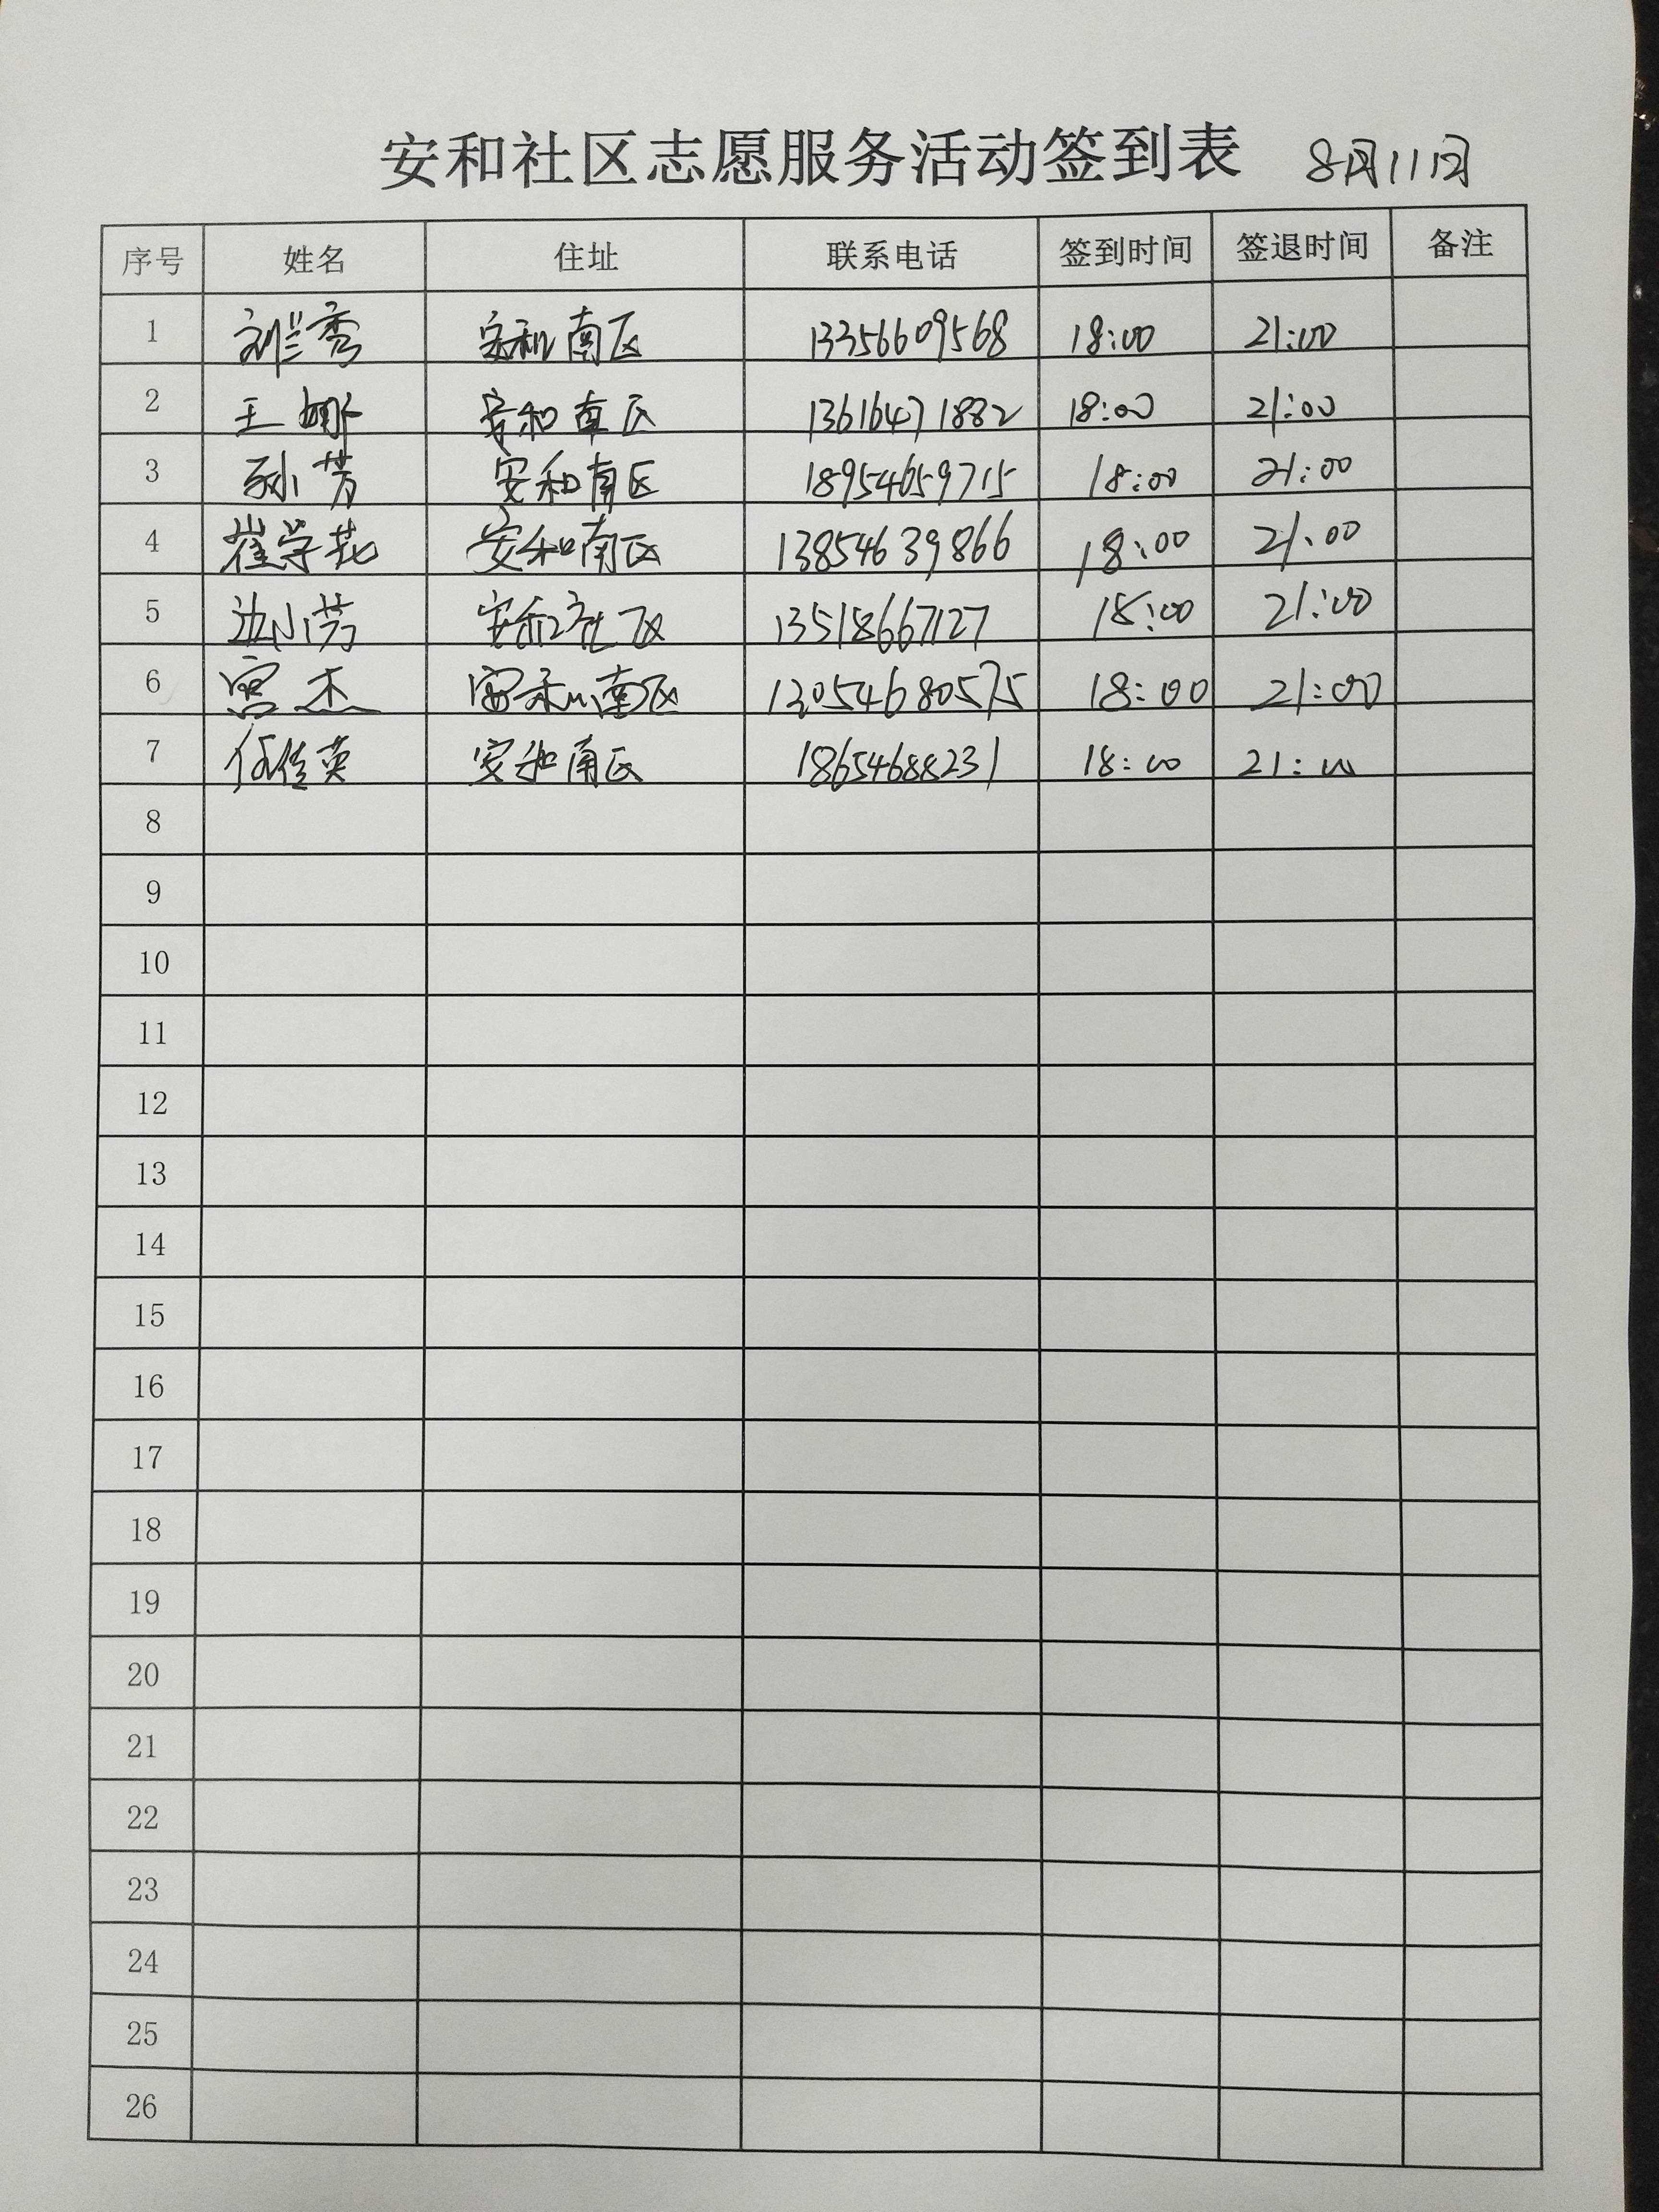 安和社区志愿服务活动签到表 8月11日
序号 姓名 住址 联系电话 签到时间 签退时间 备注
1 刘兰秀 安和南区 13356609568 18:00 21:00
2 王娜 安和南区 13616471882 18:00 21:00
3 孙芳 安和南区 18954659715 18:00 21:00
4 崔学花 安和南区 13854639866 18:00 21:00
5 边小芳 安和社区 13518667127 18:00 21:00
6 宫杰 安和南区 13054680575 18:00 21:00
7 任佳英 安和南区 18654688231 18:00 21:00
8
9
10
11
12
13
14
15
16
17
18
19
20
21
22
23
24
25
26